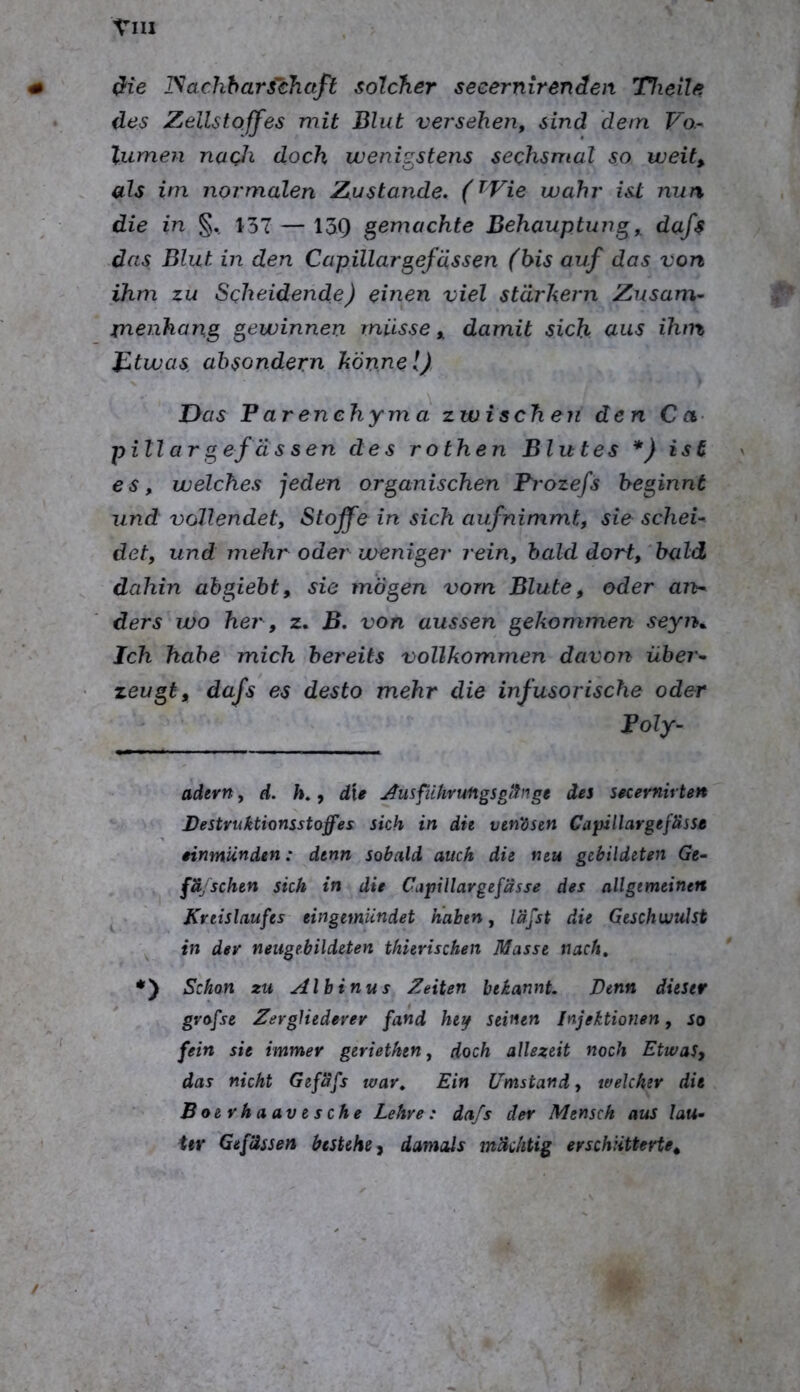 VIII
die Nachbarschaft solcher secernirenden Theile
des Zellstoffes mit Blut versehen, sind dem Vo-
lumen nach doch wenigstens sechsmal so weit,
als im normalen Zustande. (Wie wahr ist nun
die in §. 137 — 139 gemachte Behauptung, daſs
das Blut in den Capillargefässen (bis auf das von
ihm zu Scheidende) einen viel stärkern Zusam-
menhang gewinnen müsse, damit sich aus ihm
Etwas absondern könne!)
Das Parenchyma zwischen den Ca
pillargefässen des rothen Blutes *) ist
es, welches jeden organischen Prozeſs beginnt
und vollendet, Stoffe in sich aufnimmt, sie schei-
det, und mehr oder weniger rein, bald dort, bald
dahin abgiebt, sie mögen vom Blute, oder an-
ders wo her, z. B. von aussen gekommen seyn.
Ich habe mich bereits vollkommen davon über-
zeugt, daſs es desto mehr die infusorische oder
Poly-
adern, d. h., die Ausführungsgänge des secernirten
Destruktionsstoffes sich in die venösen Capillargefässe
einmünden: denn sobald auch die neu gebildeten Ge-
fäſschen sich in die Capillargefässe des allgemeinen
Kreislaufes eingemündet haben, läſst die Geschwulst
in der neugebildeten thierischen Masse nach.
*) Schon zu Albinus Zeiten bekannt. Denn dieser
groſse Zergliederer fand bey seinen Injektionen, so
fein sie immer geriethen, doch allezeit noch Etwas,
das nicht Gefäſs war. Ein Umstand, welcher die
Boerhaavesche Lehre: daſs der Mensch aus lau-
ter Gefässen bestehe, damals mächtig erschütterte.